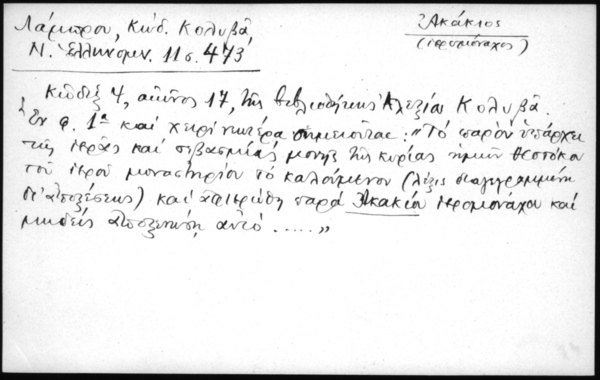 Λάμπρου, Κώδ. Κολυβᾶ,
Ν. Ἑλληνομν. 11 σ. 473
Ἀκάκιος
(ἱερομόναχος)
Κώδιξ 4, αἰῶνος 17, τῆς βιβλιοθήκης Ἀλεξίου Κολυβᾶ.
Ἐν φ. 1α καὶ χειρὶ νεωτέρᾳ σημειοῦται: "Τὸ παρὸν ὑπάρχει
τῆς ἱερᾶς καὶ σεβασμίας μονῆς τῆς κυρίας ἡμῶν Θεοτόκου
τοῦ ἱεροῦ μοναστηρίου τὸ καλούμενον (λέξις διαγεγραμμένη
δι' ἀποξέσεως) καὶ ἀφιερώθη παρὰ Ἀκακίου ἱερομονάχου καὶ
μηδεὶς ἀποξενώσῃ αὐτό ....."